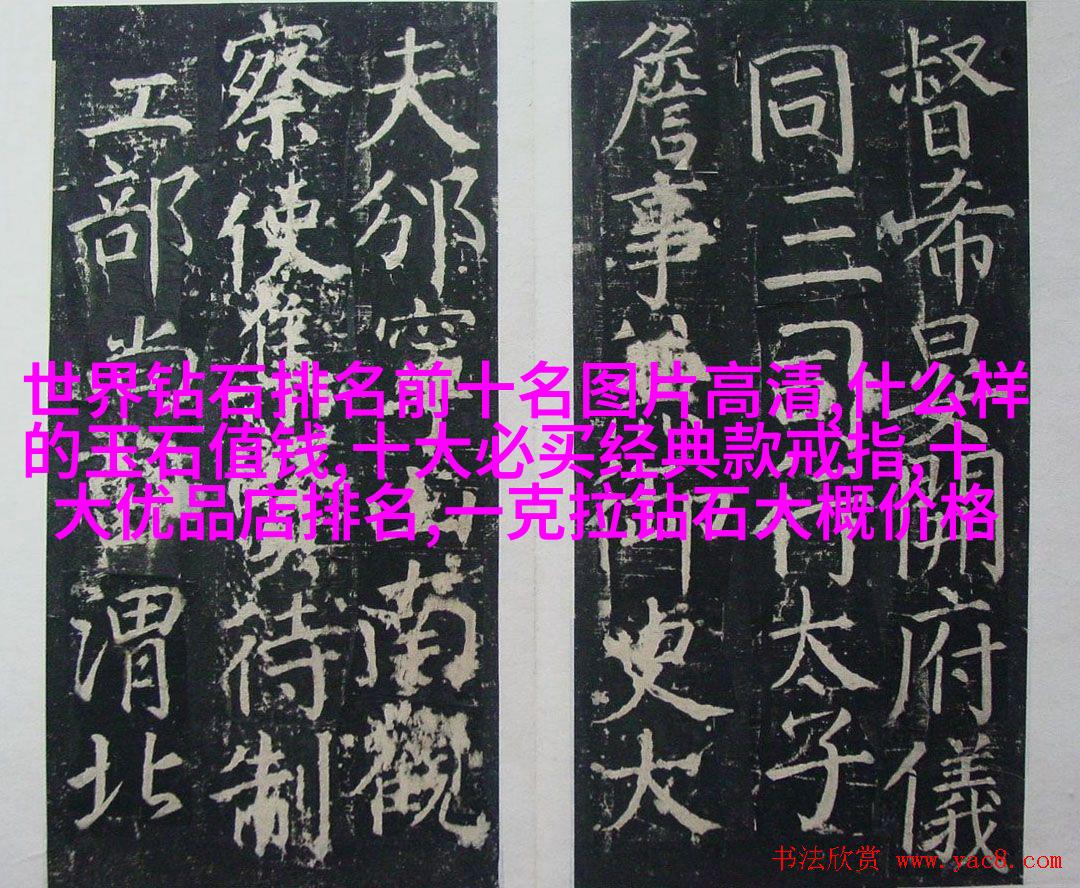 督希晏開府儀
同三司行太子
詹事史大
夫邠寧山南觀
察使待制
工部尚渭北
世界钻石排名前十名图片高清,什么样
的玉石值钱,十大必买经典款戒指,十
大优品店排名,一克拉钻石大概价格
书法欣赏 www.yac8.com